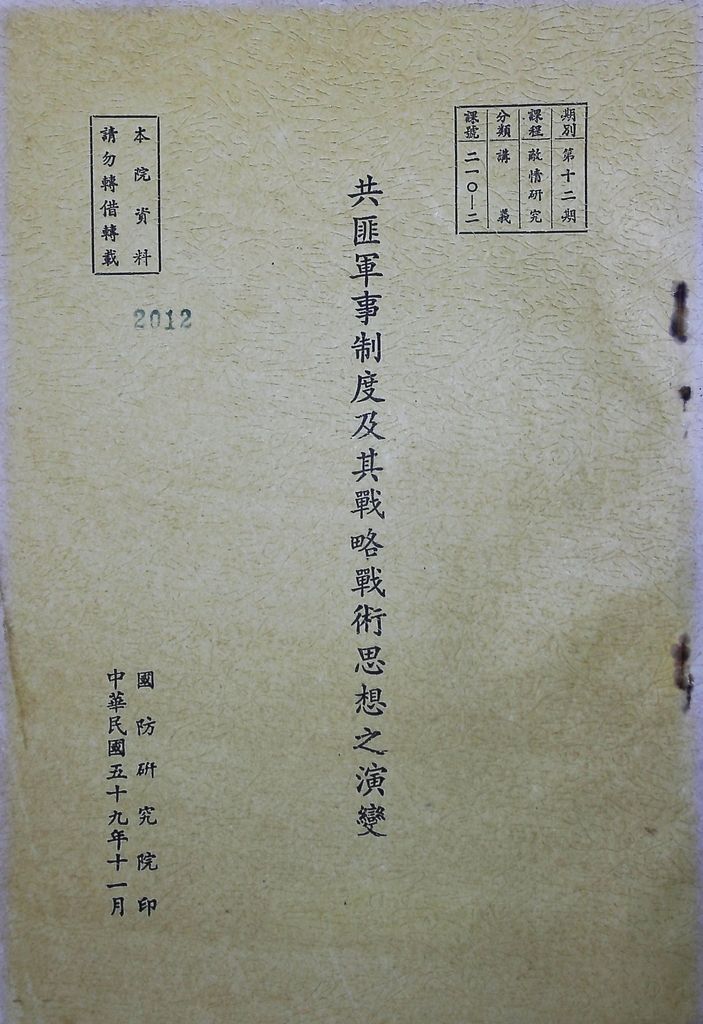 期別 第十二期
課程 敵情研究
分類 講義
課號 二一〇—二
共匪軍事制度及其戰略戰術思想之演變
本院資料
請勿轉借轉載
2012
國防研究院印
中華民國五十九年十一月